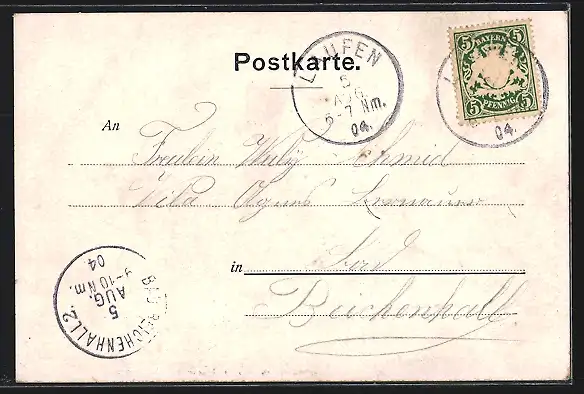 Postkarte.
LAUFEN
5
AUG.
6-7 Nm.
04.
5 5
BAYERN
PFENNIG
5 5
04.
An
Fräulein Schmid
Villa Agnes
in Bad
Reichenhall
BAD REICHENHALL 2.
5
AUG.
9-10 Nm.
04.